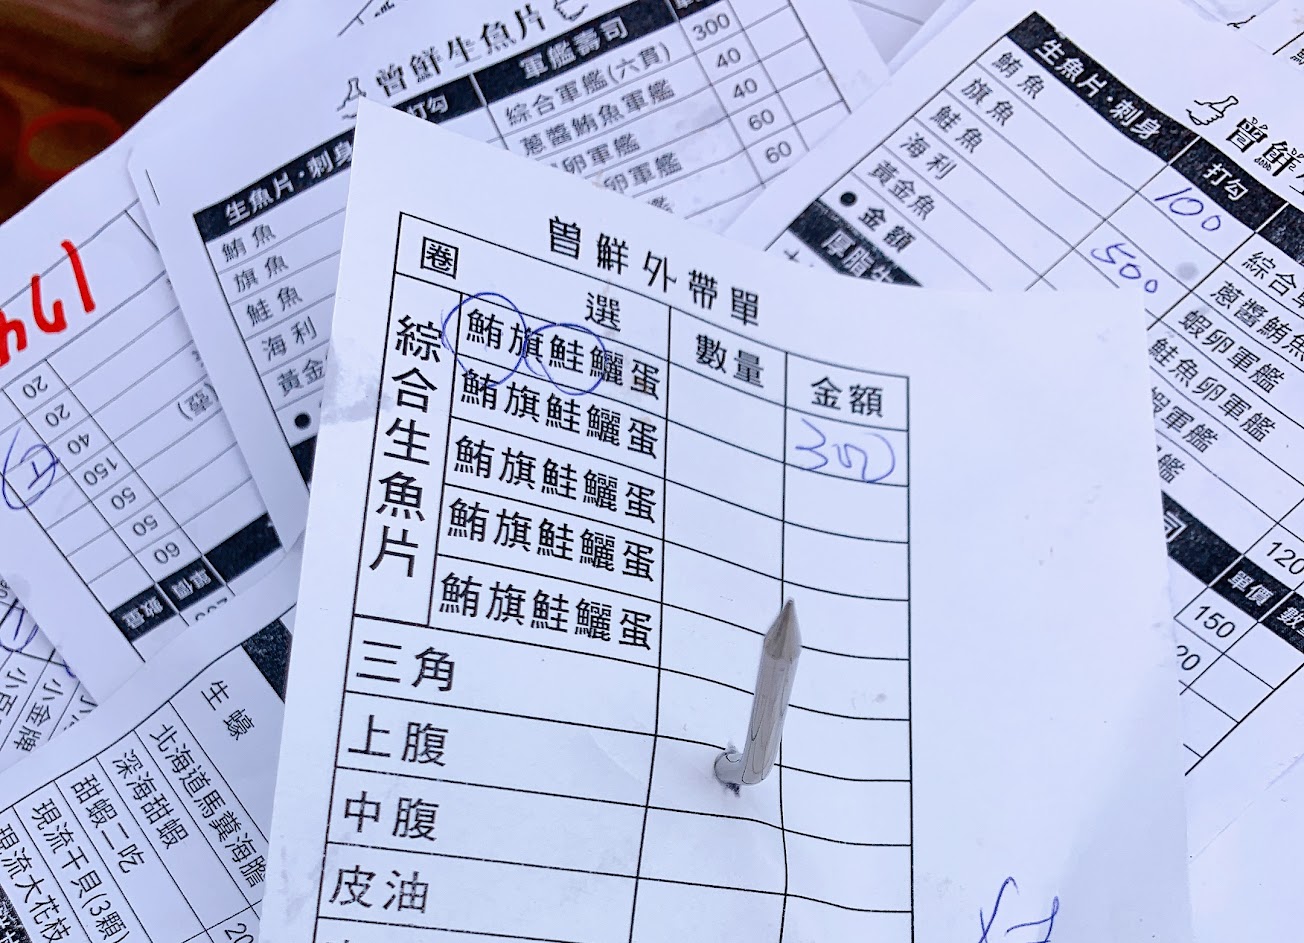 曾鮮外帶單
圈選 數量 金額
綜合生魚片
鮪旗鮭鱺蛋
鮪旗鮭鱺蛋
鮪旗鮭鱺蛋
鮪旗鮭鱺蛋
鮪旗鮭鱺蛋
三角
上腹
中腹
皮油
曾鮮生魚片
打勾 軍艦壽司
綜合軍艦(六貫) 300
蔥醬鮪魚軍艦 40
卵軍艦 40
卵軍艦 60
60
生魚片·刺身
鮪魚
旗魚
鮭魚
海利
黃金
曾鮮
生魚片·刺身 打勾
鮪魚 100
旗魚
鮭魚 500
海利
黃金魚
●金額
厚脂
綜合
蔥醬鮪魚
蝦卵軍艦
鮭魚卵軍艦
軍艦
艦
司 單價
120
150
20
174
20
20
40
150
50
50
60
單價
數量
生蠔
北海道馬糞海膽
深海甜蝦
甜蝦二吃
現流干貝(3顆)
現流大花枝
20
小金牌